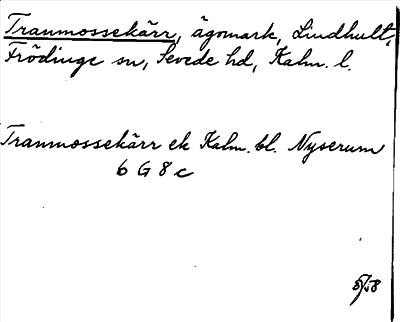 Tranmossekärr, ägomark, Lindhult,
Frödinge sn, Sevede hd, Kalm. l.
Tranmossekärr ek Kalm. bl. Nyserum
6 G 8 c